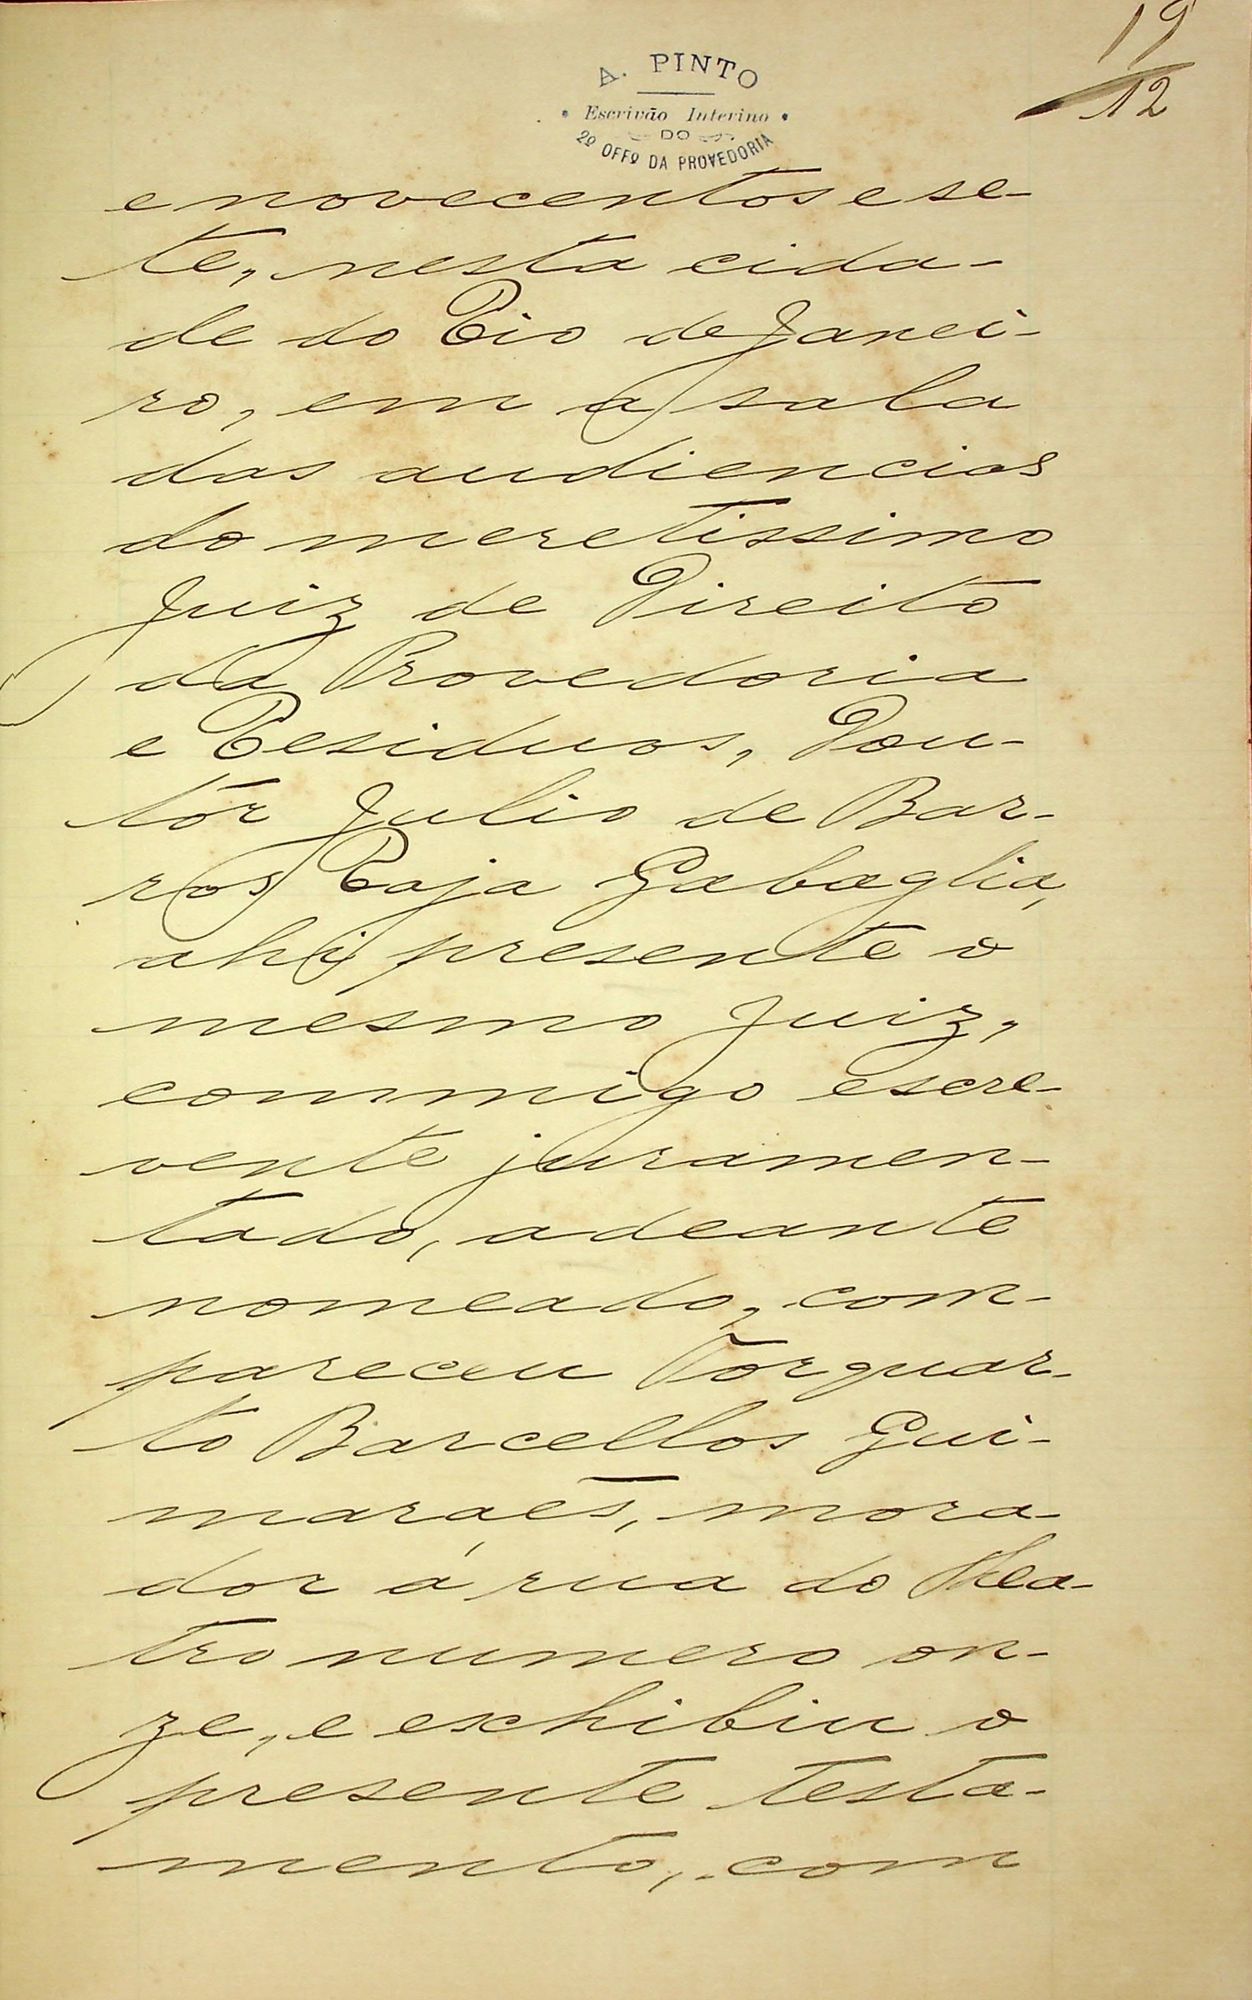 19
12
A. PINTO
Escrivão Interino
DO
2º OFFº DA PROVEDORIA
e novecentos e se-
te, nesta cida-
de do Rio de Janei-
ro, em a sala
das audiencias
do meretissimo
Juiz de Direito
da Provedoria
e Residuos, Dou-
tor Julio de Bar-
ros Raja Gabaglia,
ahi presente o
mesmo Juiz,
commigo escre-
vente juramen-
tado, adeante
nomeado, com-
pareceu Torquar-
to Barcellos Gui-
marães, mora-
dor á rua do Thea-
tro numero on-
ze, e exhibiu o
presente testa-
mento, com